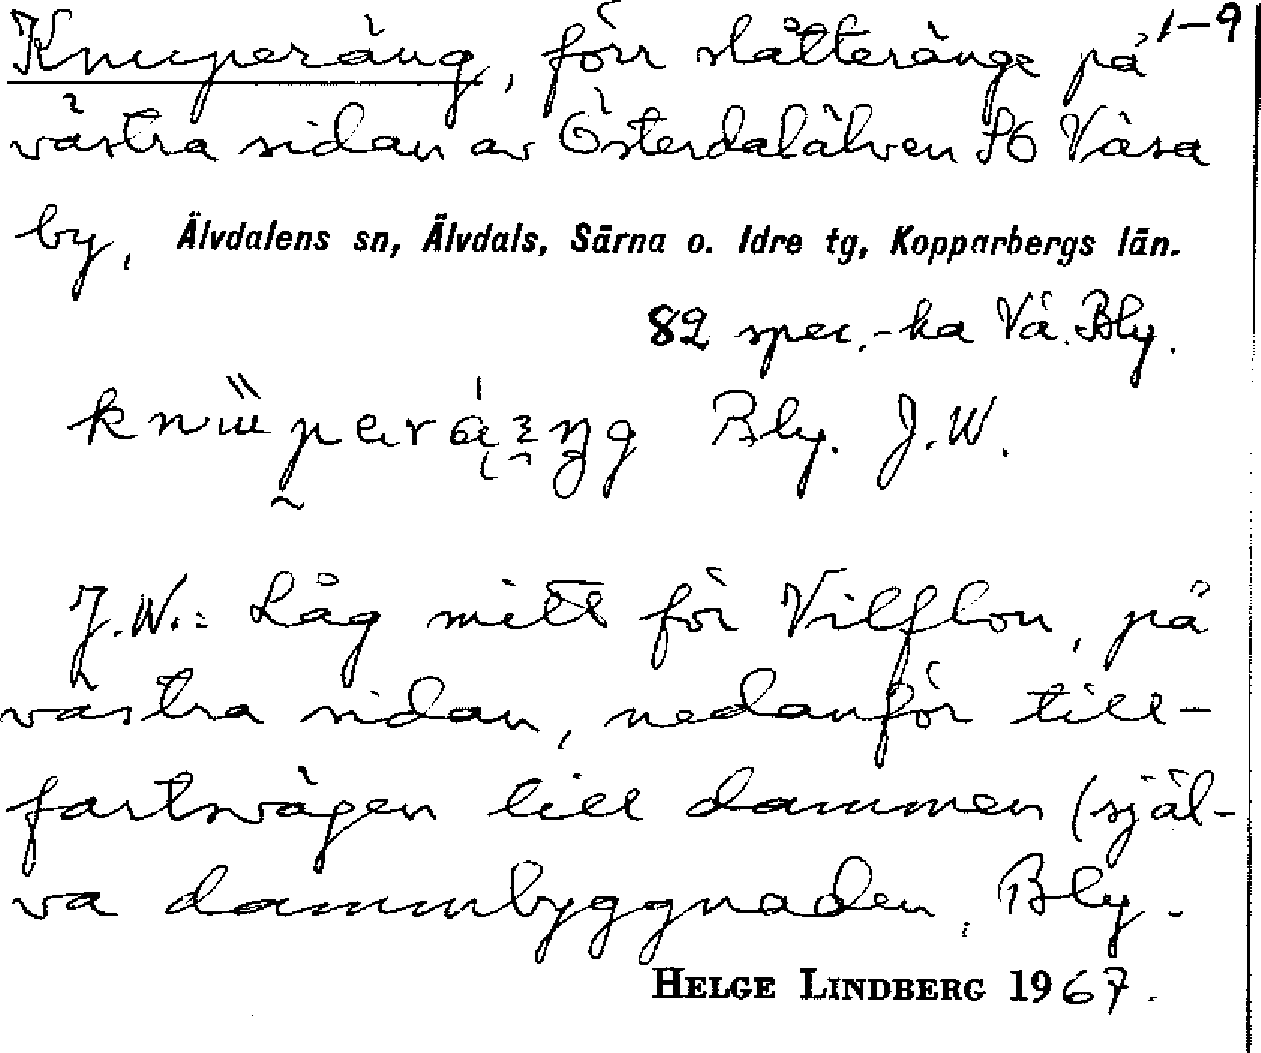 Knuperäng, förr slåtteränge på 1-9
västra sidan av Österdalälven SO Våsa
by, Älvdalens sn, Älvdals, Särna o. Idre tg, Kopparbergs län.
82 spec.-ka Vå. Bly.
Bly. J.W.
J.W.: Låg mitt för Vilflon, på
västra sidan, nedanför till-
fartsvägen till dammen (själ-
va dammbyggnaden, Bly.
HELGE LINDBERG 1967.